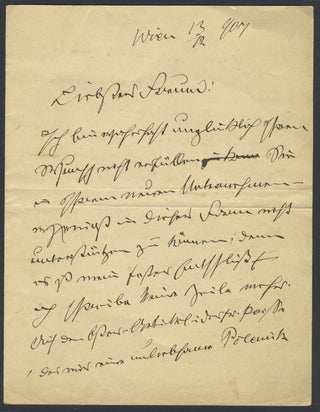 Wien 13/12 907
Liebster Freund!
Ich bin wahrhaft unglücklich Ihren
Wunsch nicht erfüllen zu Sie
in Ihrem neuen Unternehmen –
in dieser Form nicht
unterstützen zu können; denn
es ist mein fester Entschluß
ich schreibe keine Zeile mehr.
Auf den Artikel der
, der mir eine unliebsame Polemik